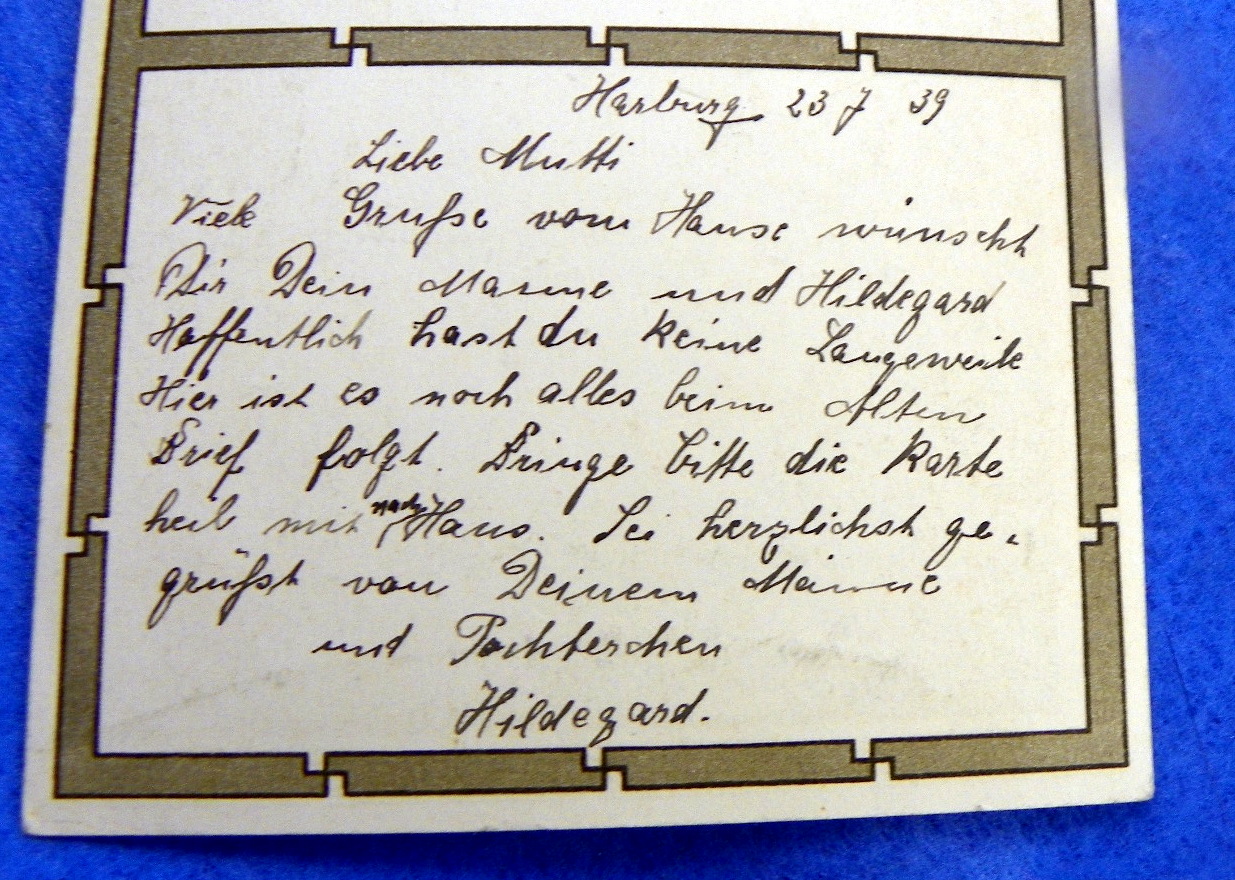 Harburg 23 7 39
Liebe Mutti
Viele Grüße vom Hause wünscht
Dir Dein Manne und Hildegard
Hoffentlich hast du keine Langeweile
Hier ist es noch alles beim Alten
Brief folgt. Bringe bitte die Karte
heil mit nach Haus. Sei herzlichst ge-
grüßt von Deinem Manne
und Tochterchen
Hildegard.